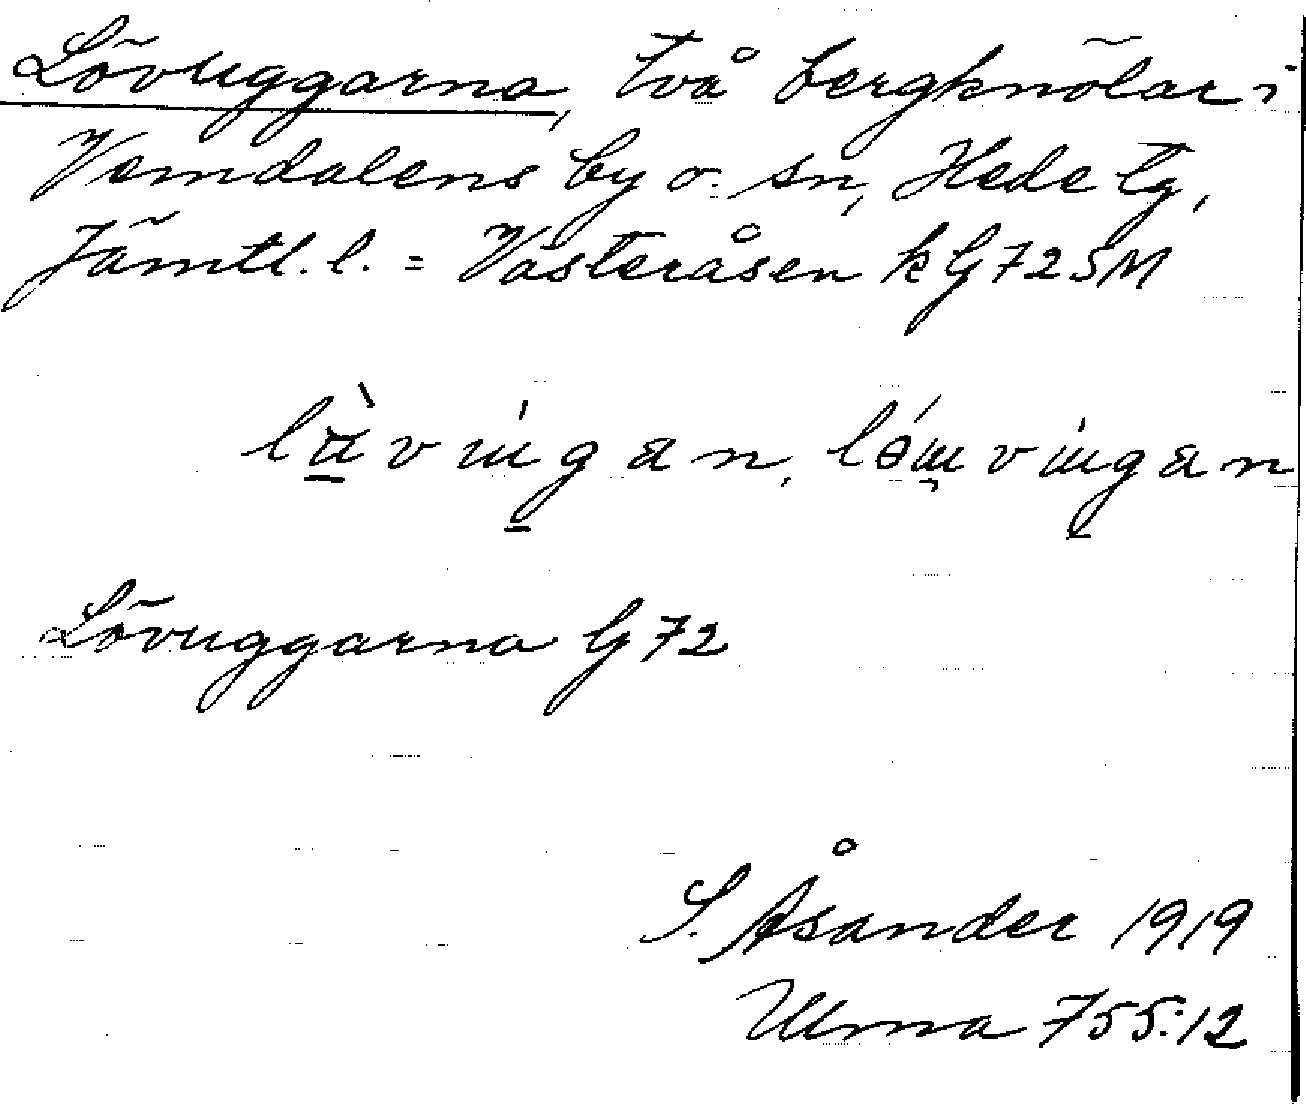 Lövuggarna, två bergknölar i
Vemdalens by o. sn, Hede tg,
Jämtl. l. = Västeråsen k G 72 SM
Lövuggarna G 72
S. Åsander 1919
Ulma 755:12